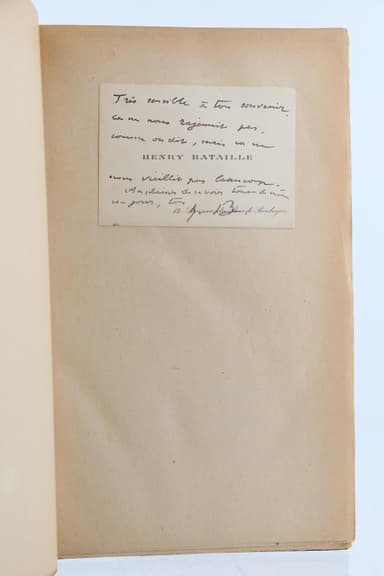 Très sensible à ton souvenir.
Ça ne nous rajeunit pas,
comme on dit, mais ça ne
HENRY BATAILLE
nous vieillit pas beaucoup.
Au plaisir de te voir
ces jours, ton